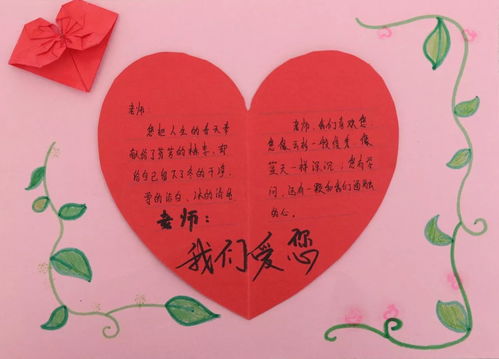 老师:
您把人生的春天奉
献给了芬芳的桃李,却
给自己留下了冬的干净,
雪的洁白、冰的清纯
老师,我们喜欢您,
您像云杉一般俊秀,像
蓝天一样深沉;您有学
问,还有一颗和我们通融
的心。
老师:
我们爱您